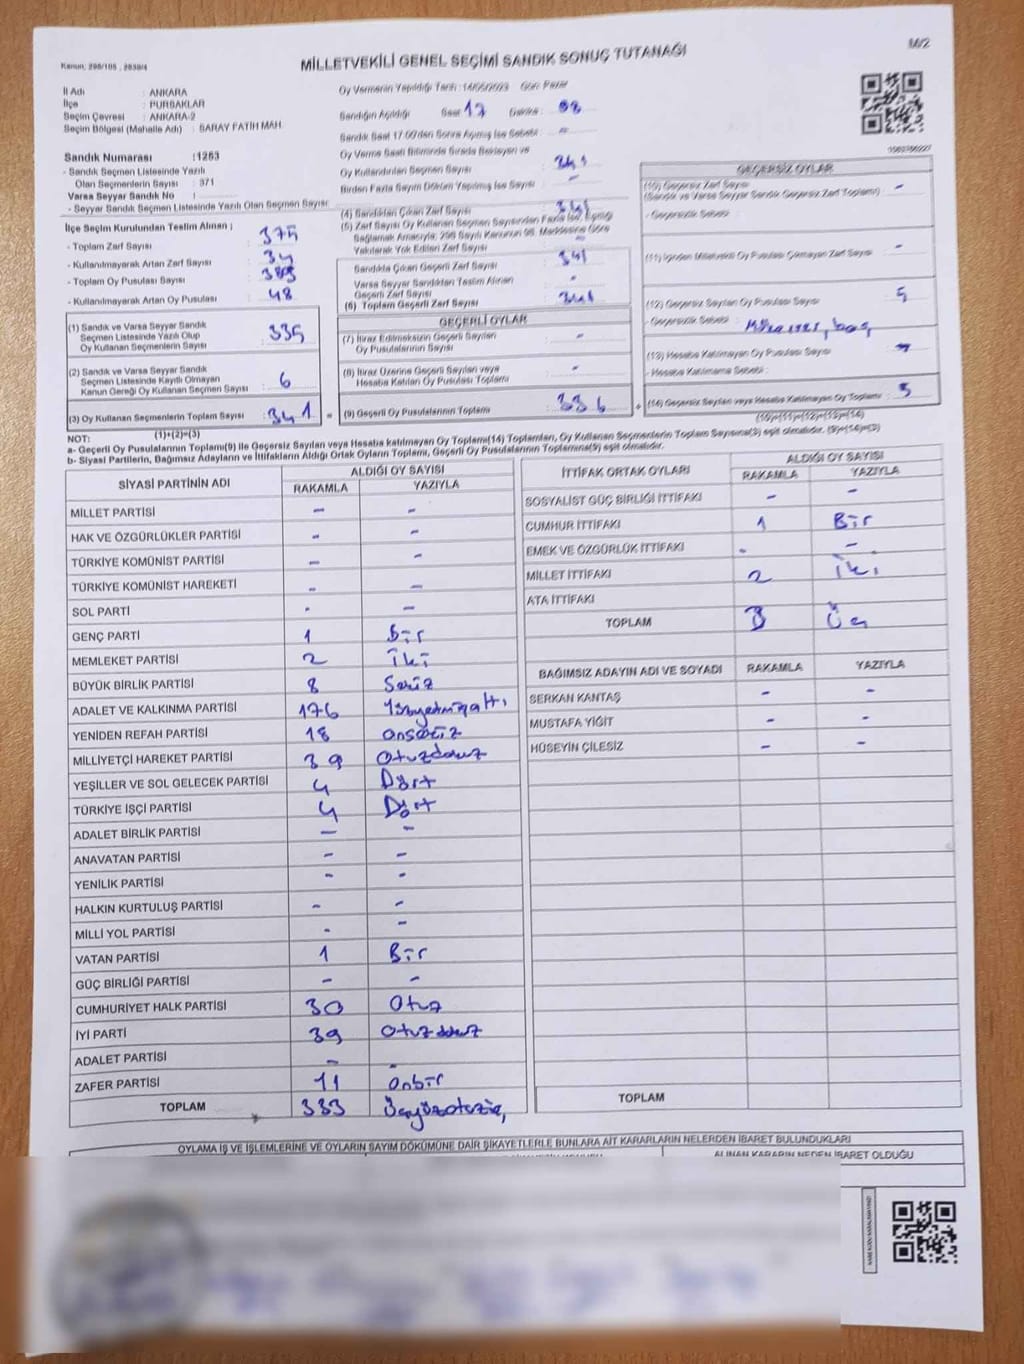 M/2
Kanun: 298/105 , 2839/4
MİLLETVEKİLİ GENEL SEÇİMİ SANDIK SONUÇ TUTANAĞI
İl Adı : ANKARA
İlçe : PURSAKLAR
Seçim Çevresi : ANKARA-2
Seçim Bölgesi (Mahalle Adı) : SARAY FATİH MAH.
Oy Vermenin Yapıldığı Tarih : 14/05/2023 Gün: Pazar
Sandığın Açıldığı Saat 17 Dakika :
Sandık Saat 17:00'den Sonra Açılmış İse Sebebi : -
Oy Verme Saati Bitiminde Sırada Bekleyen ve
Oy Kullandırılan Seçmen Sayısı : 341
Birden Fazla Sayım Döküm Yapılmış İse Sayısı : -
Sandık Numarası :1263
- Sandık Seçmen Listesinde Yazılı
Olan Seçmenlerin Sayısı : 371
Varsa Seyyar Sandık No :
- Seyyar Sandık Seçmen Listesinde Yazılı Olan Seçmen Sayısı:
İlçe Seçim Kurulundan Teslim Alınan ;
- Toplam Zarf Sayısı : 375
- Kullanılmayarak Artan Zarf Sayısı : 34
- Toplam Oy Pusulası Sayısı :
- Kullanılmayarak Artan Oy Pusulası : 48
(1) Sandık ve Varsa Seyyar Sandık
Seçmen Listesinde Yazılı Olup
Oy Kullanan Seçmenlerin Sayısı : 335
(2) Sandık ve Varsa Seyyar Sandık
Seçmen Listesinde Kayıtlı Olmayan
Kanun Gereği Oy Kullanan Seçmen Sayısı : 6
(3) Oy Kullanan Seçmenlerin Toplam Sayısı : 341
(1)+(2)=(3)
(4) Sandıktan Çıkan Zarf Sayısı : 341
(5) Zarf Sayısı Oy Kullanan Seçmen Sayısından Fazla İse, Eşitliği
Sağlamak Amacıyla; 298 Sayılı Kanunun 98. Maddesine Göre
Yakılarak Yok Edilen Zarf Sayısı : -
Sandıkta Çıkan Geçerli Zarf Sayısı : 341
Varsa Seyyar Sandıktan Teslim Alınan
Geçerli Zarf Sayısı : -
(6) Toplam Geçerli Zarf Sayısı : 341
GEÇERLİ OYLAR
(7) İtiraz Edilmeksizin Geçerli Sayılan
Oy Pusulalarının Sayısı : -
(8) İtiraz Üzerine Geçerli Sayılan veya
Hesaba Katılan Oy Pusulası Toplamı : -
= (9) Geçerli Oy Pusulalarının Toplamı : 336
GEÇERSİZ OYLAR
(10) Geçersiz Zarf Sayısı
(Sandık ve Varsa Seyyar Sandık Geçersiz Zarf Toplamı) : -
- Geçersizlik Sebebi :
(11) İçinden Milletvekili Oy Pusulası Çıkmayan Zarf Sayısı : -
(12) Geçersiz Sayılan Oy Pusulası Sayısı : 5
- Geçersizlik Sebebi :
(13) Hesaba Katılmayan Oy Pusulası Sayısı :
- Hesaba Katılmama Sebebi :
+ (14) Geçersiz Sayılan veya Hesaba Katılmayan Oy Toplamı : 5
(10)+(11)+(12)+(13)=(14)
NOT:
a- Geçerli Oy Pusulalarının Toplamı(9) ile Geçersiz Sayılan veya Hesaba katılmayan Oy Toplamı(14) Toplamları, Oy Kullanan Seçmenlerin Toplam Sayısına(3) eşit olmalıdır. (9)+(14)=(3)
b- Siyasi Partilerin, Bağımsız Adayların ve İttifakların Aldığı Ortak Oyların Toplamı, Geçerli Oy Pusulalarının Toplamına(9) eşit olmalıdır.
SİYASİ PARTİNİN ADI ALDIĞI OY SAYISI
RAKAMLA YAZIYLA
MİLLET PARTİSİ - -
HAK VE ÖZGÜRLÜKLER PARTİSİ - -
TÜRKİYE KOMÜNİST PARTİSİ - -
TÜRKİYE KOMÜNİST HAREKETİ - -
SOL PARTİ - -
GENÇ PARTİ 1 Bir
MEMLEKET PARTİSİ 2 İki
BÜYÜK BİRLİK PARTİSİ 8 Sekiz
ADALET VE KALKINMA PARTİSİ 176 Yüzyetmişaltı
YENİDEN REFAH PARTİSİ 18 Onsekiz
MİLLİYETÇİ HAREKET PARTİSİ 39 Otuzdokuz
YEŞİLLER VE SOL GELECEK PARTİSİ 4 Dört
TÜRKİYE İŞÇİ PARTİSİ 4 Dört
ADALET BİRLİK PARTİSİ - -
ANAVATAN PARTİSİ - -
YENİLİK PARTİSİ - -
HALKIN KURTULUŞ PARTİSİ - -
MİLLİ YOL PARTİSİ - -
VATAN PARTİSİ 1 Bir
GÜÇ BİRLİĞİ PARTİSİ - -
CUMHURİYET HALK PARTİSİ 30 Otuz
İYİ PARTİ 39 Otuzdokuz
ADALET PARTİSİ - -
ZAFER PARTİSİ 11 Onbir
TOPLAM 333
İTTİFAK ORTAK OYLARI ALDIĞI OY SAYISI
RAKAMLA YAZIYLA
SOSYALİST GÜÇ BİRLİĞİ İTTİFAKI - -
CUMHUR İTTİFAKI 1 Bir
EMEK VE ÖZGÜRLÜK İTTİFAKI - -
MİLLET İTTİFAKI 2 İki
ATA İTTİFAKI
TOPLAM 3 Üç
BAĞIMSIZ ADAYIN ADI VE SOYADI RAKAMLA YAZIYLA
SERKAN KANTAŞ - -
MUSTAFA YİĞİT - -
HÜSEYİN ÇİLESİZ - -
TOPLAM
OYLAMA İŞ VE İŞLEMLERİNE VE OYLARIN SAYIM DÖKÜMÜNE DAİR ŞİKAYETLERLE BUNLARA AİT KARARLARIN NELERDEN İBARET BULUNDUKLARI
ALINAN KARARIN NEDEN İBARET OLDUĞU